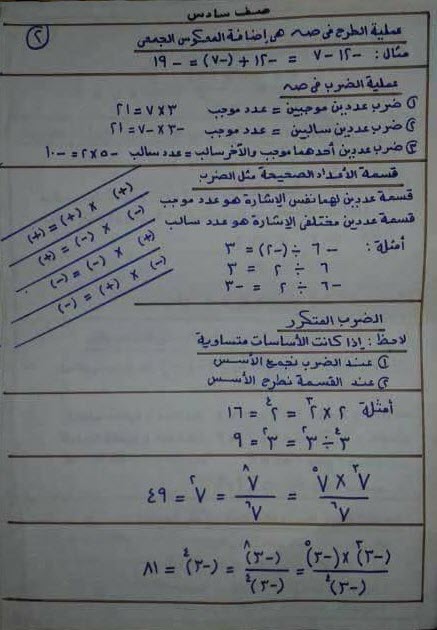 صف سادس
٢
عملية الطرح في صـه هي إضافة المعكوس الجمعي
مثال : -١٢ - ٧ = -١٢ + (-٧) = -١٩
عملية الضرب في صـه
① ضرب عددين موجبين = عدد موجب ٣ × ٧ = ٢١
② ضرب عددين سالبين = عدد موجب -٣ × -٧ = ٢١
③ ضرب عددين أحدهما موجب والآخر سالب = عدد سالب -٥ × ٢ = -١٠
قسمة الأعداد الصحيحة مثل الضرب
قسمة عددين لهما نفس الإشارة هو عدد موجب
قسمة عددين مختلفى الإشارة هو عدد سالب
أمثلة : -٦ ÷ (-٢) = ٣
٦ ÷ ٢ = ٣
-٦ ÷ ٢ = -٣
(+) × (+) = (+)
(-) × (-) = (+)
(+) × (-) = (-)
(-) × (+) = (-)
الضرب المتكرر
لاحظ : إذا كانت الأساسات متساوية
① عند الضرب نجمع الأسس
② عند القسمة نطرح الأسس
أمثلة ٢ × ٢^٣ = ٢^٤ = ١٦
٣^٤ ÷ ٣^٢ = ٣^٢ = ٩
٧^٣ × ٧^٥ / ٧^٦ = ٧^٨ / ٧^٦ = ٧^٢ = ٤٩
(-٣)^٣ × (-٣)^٥ / (-٣)^٤ = (-٣)^٨ / (-٣)^٤ = (-٣)^٤ = ٨١